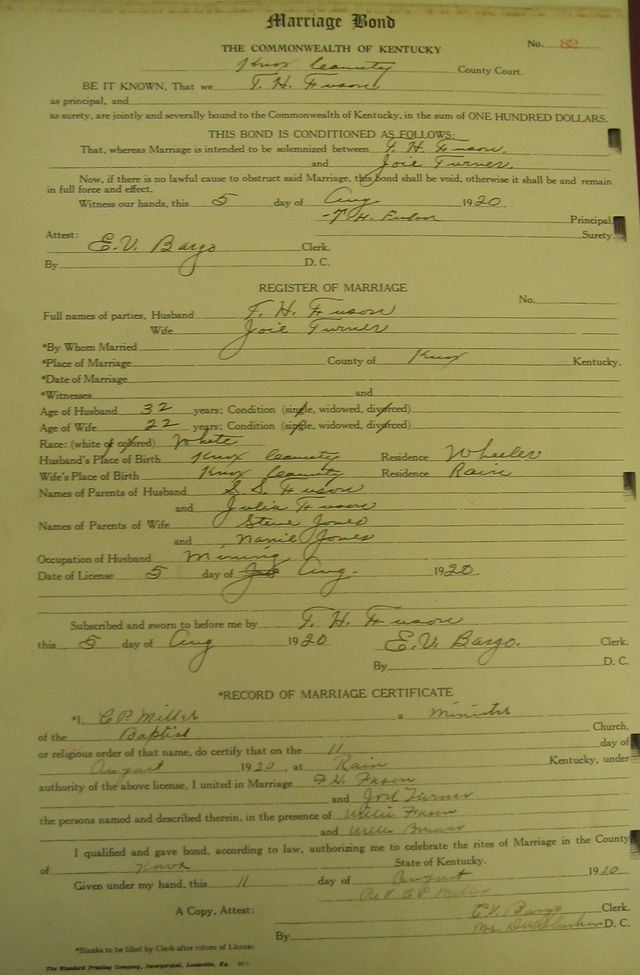 Marriage Bond
THE COMMONWEALTH OF KENTUCKY
No. 82
Knox County County Court.
BE IT KNOWN, That we T. H. Fuson,
as principal, and
as surety, are jointly and severally bound to the Commonwealth of Kentucky, in the sum of ONE HUNDRED DOLLARS.
THIS BOND IS CONDITIONED AS FOLLOWS:
That, whereas Marriage is intended to be solemnized between T. H. Fuson,
and Joie Turner.
Now, if there is no lawful cause to obstruct said Marriage, this bond shall be void, otherwise it shall be and remain
in full force and effect.
Witness our hands, this 5 day of Aug 1920
T. H. Fuson Principal.
Surety.
Attest: E. V. Bargo Clerk.
By D. C.
REGISTER OF MARRIAGE
No.
Full names of parties, Husband T. H. Fuson
Wife Joie Turner
*By Whom Married
*Place of Marriage County of Knox Kentucky.
*Date of Marriage
*Witnesses and
Age of Husband 32 years; Condition (single, widowed, divorced)
Age of Wife 22 years; Condition (single, widowed, divorced)
Race: (white or colored) White
Husband's Place of Birth Knox County Residence Wheeler
Wife's Place of Birth Knox County Residence Rain
Names of Parents of Husband S. S. Fuson
and Julia Fuson
Names of Parents of Wife Steve Jones
and Nanie Jones
Occupation of Husband Mining
Date of License 5 day of Aug. 1920
Subscribed and sworn to before me by T. H. Fuson
this 5 day of Aug 1920 E. V. Bargo. Clerk.
By D. C.
*RECORD OF MARRIAGE CERTIFICATE
*I, C P. Miller a Minister
of the Baptist Church,
or religious order of that name, do certify that on the 11 day of
August 1920, at Rain Kentucky, under
authority of the above license, I united in Marriage
and Turner
the persons named and described therein, in the presence of Willie
and
I qualified and gave bond, according to law, authorizing me to celebrate the rites of Marriage in the County
of Knox State of Kentucky.
Given under my hand, this 11 day of August 1920
Rev C P Miller
A Copy, Attest: E. V. Bargo Clerk.
By D. C.
*Blanks to be filled by Clerk after return of License.
The Standard Printing Company, Incorporated, Louisville, Ky. M.C.